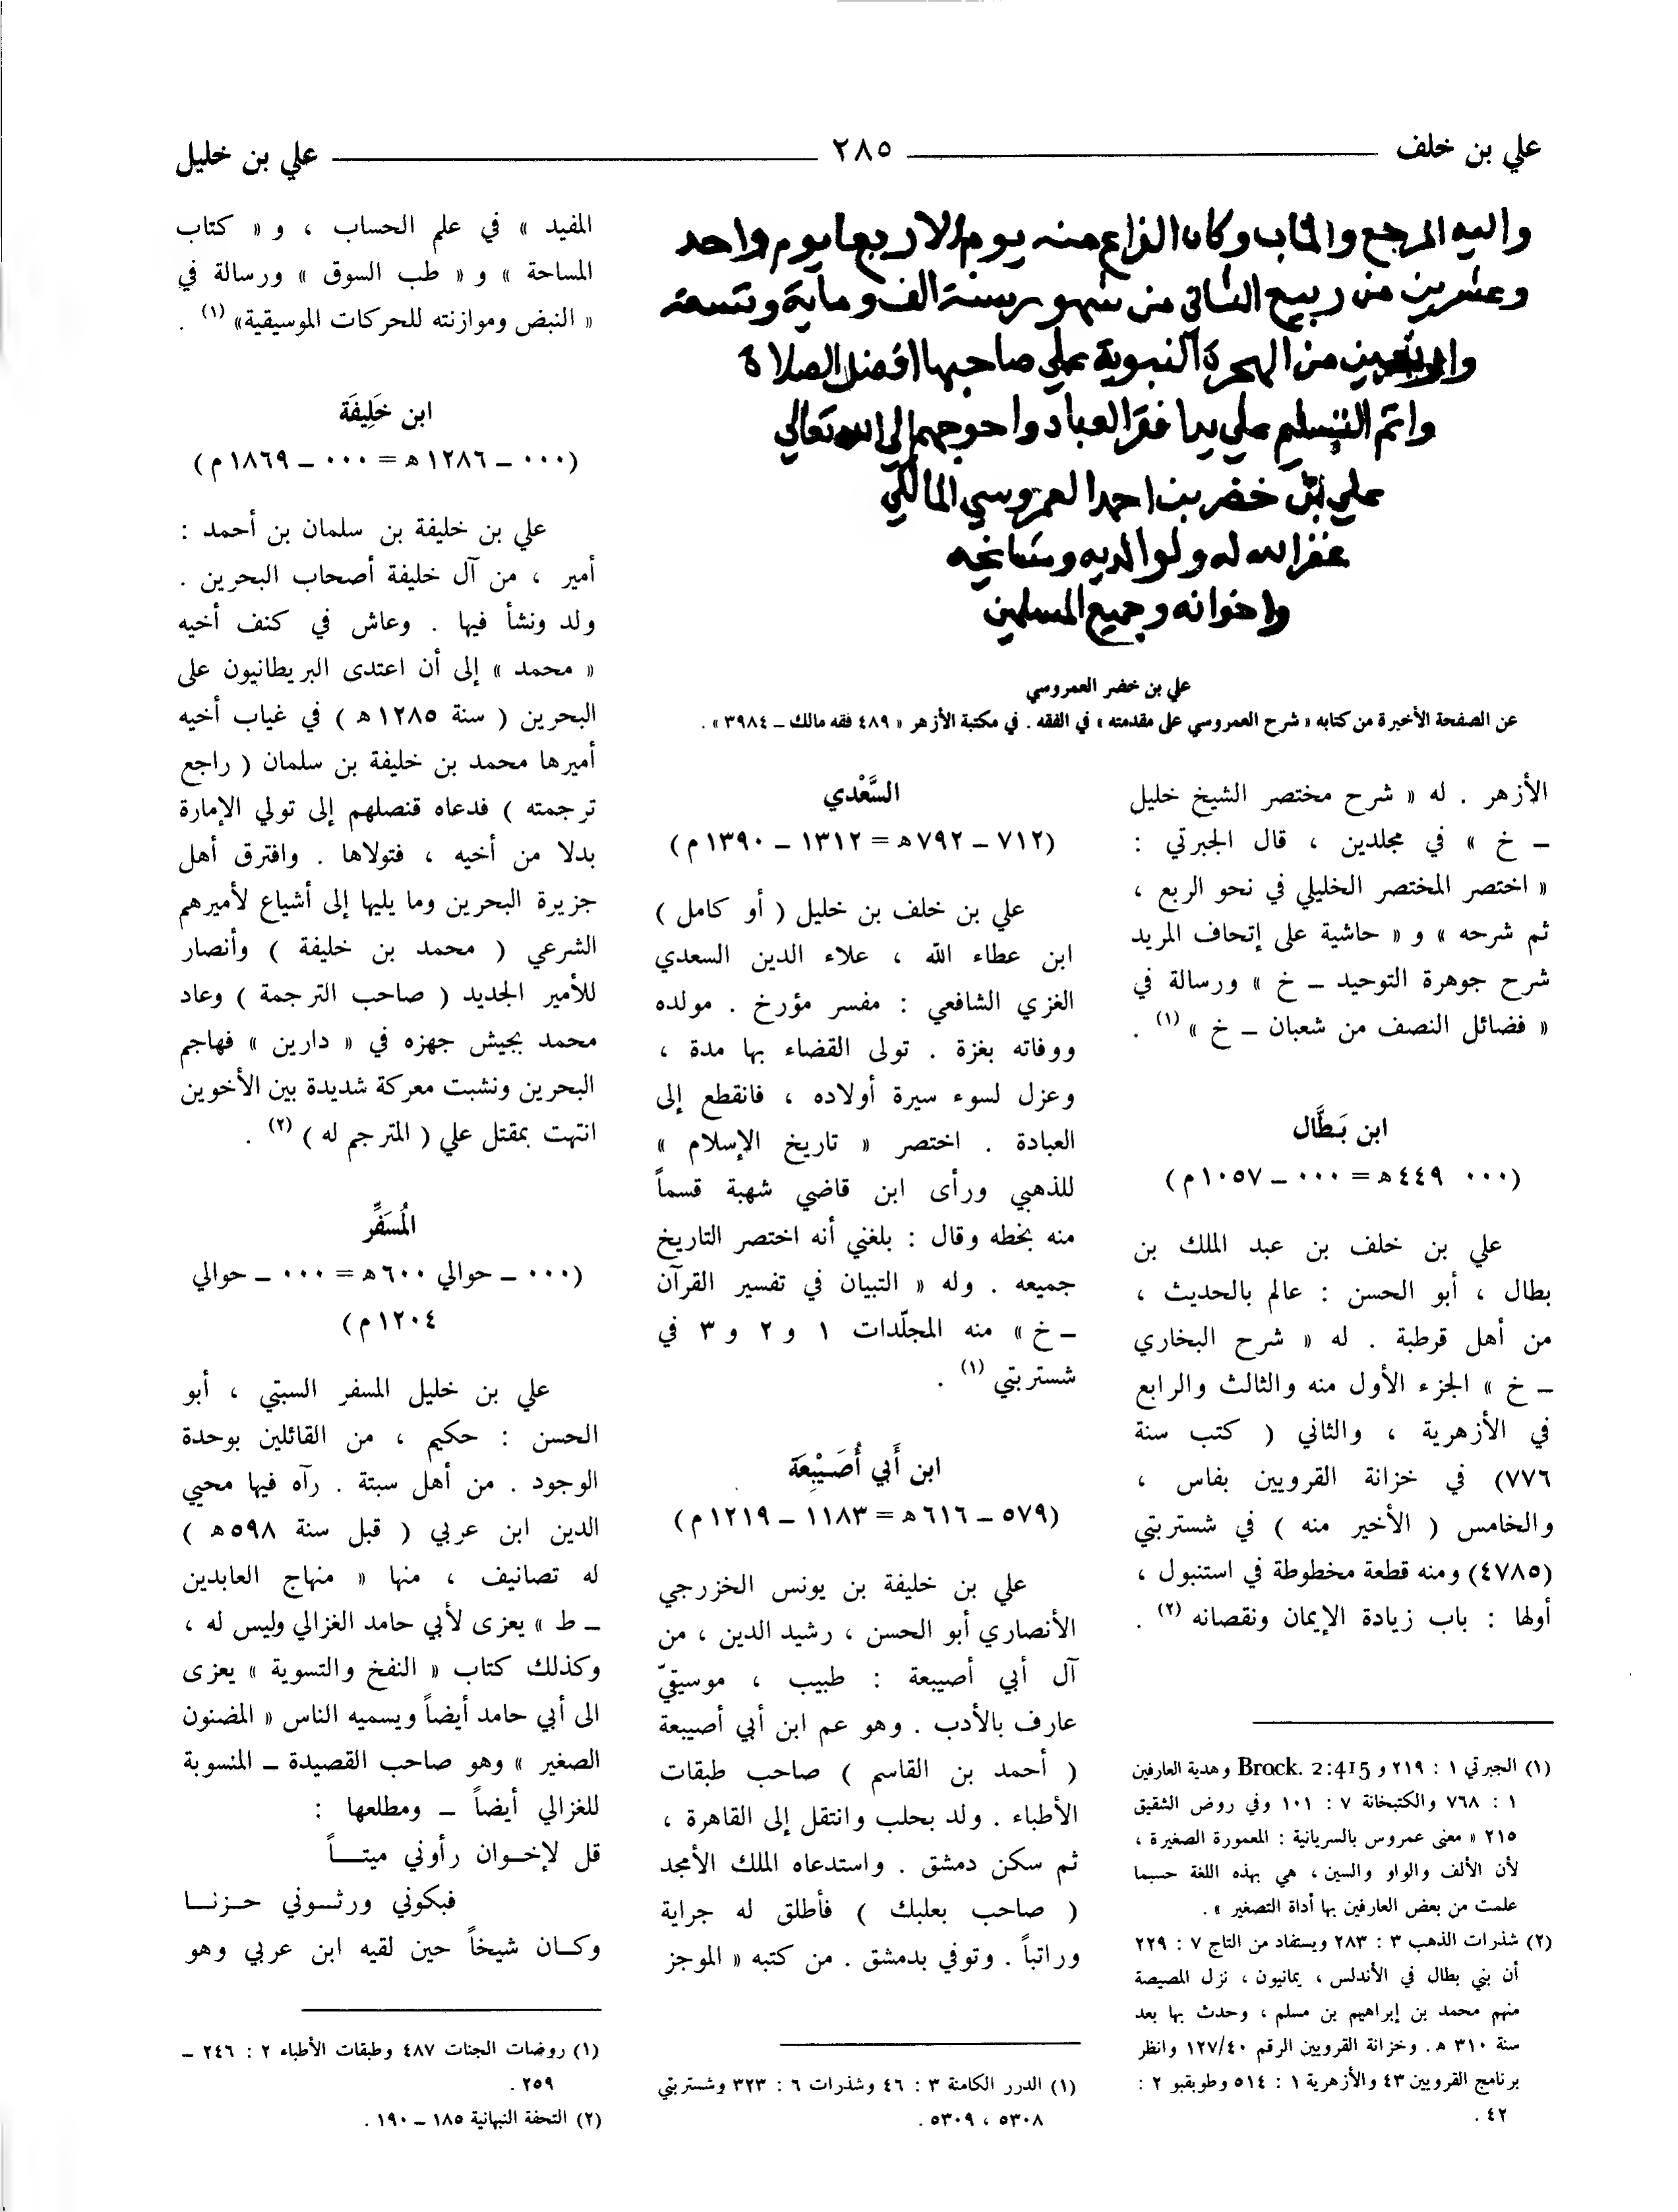 علي بن خلف
٢٨٥
علي بن خليل
واليه المرجع والماب وكان الفراغ منه يوم الاربعا يوم واحد
وعشرين من ربيع الثاني من شهور سنة الف وماية وتسعة
واربعين من الهجرة النبوية علي صاحبها افضل الصلاة
واتم التسليم علي يد افقر العباد واحوجهم الي الله تعالي
علي بن خضر بن احمد العمروسي المالكي
غفر الله له ولوالديه ومشايخه
واخوانه وجميع المسلمين
علي بن خضر العمروسي
عن الصفحة الأخيرة من كتابه « شرح العمروسي على مقدمته » في الفقه . في مكتبة الأزهر « ٤٨٩ فقه مالك – ٣٩٨٤ » .
الأزهر . له « شرح مختصر الشيخ خليل
– خ » في مجلدين ، قال الجبرتي :
« اختصر المختصر الخليلي في نحو الربع ،
ثم شرحه » و « حاشية على إتحاف المريد
شرح جوهرة التوحيد – خ » ورسالة في
« فضائل النصف من شعبان – خ » (١) .
ابن بَطَّال
(٠٠٠ ٤٤٩ ه = ٠٠٠ – ١٠٥٧ م)
علي بن خلف بن عبد الملك بن
بطال ، أبو الحسن : عالم بالحديث ،
من أهل قرطبة . له « شرح البخاري
– خ » الجزء الأول منه والثالث والرابع
في الأزهرية ، والثاني ( كتب سنة
٧٧٦) في خزانة القرويين بفاس ،
والخامس ( الأخير منه ) في شستربتي
(٤٧٨٥) ومنه قطعة مخطوطة في استنبول ،
أولها : باب زيادة الإيمان ونقصانه (٢) .
(١) الجبرتي ١ : ٢١٩ و Brock. 2:415 وهدية العارفين
١ : ٧٦٨ والكتبخانة ٧ : ١٠١ وفي روض الشقيق
٢١٥ « معنى عمروس بالسريانية : المعمورة الصغيرة ،
لأن الألف والواو والسين ، هي بهذه اللغة حسبما
علمت من بعض العارفين بها أداة التصغير » .
(٢) شذرات الذهب ٣ : ٢٨٣ ويستفاد من التاج ٧ : ٢٢٩
أن بني بطال في الأندلس ، يمانيون ، نزل المصيصة
منهم محمد بن إبراهيم بن مسلم ، وحدث بها بعد
سنة ٣١٠ ه . وخزانة القرويين الرقم ١٢٧/٤٠ وانظر
برنامج القرويين ٤٣ والأزهرية ١ : ٥١٤ وطوبقبو ٢ :
٤٢ .
السَّعْدي
(٧١٢ – ٧٩٢ ه = ١٣١٢ – ١٣٩٠ م)
علي بن خلف بن خليل ( أو كامل )
ابن عطاء الله ، علاء الدين السعدي
الغزي الشافعي : مفسر مؤرخ . مولده
ووفاته بغزة . تولى القضاء بها مدة ،
وعزل لسوء سيرة أولاده ، فانقطع إلى
العبادة . اختصر « تاريخ الإسلام »
للذهبي ورأى ابن قاضي شهبة قسماً
منه بخطه وقال : بلغني أنه اختصر التاريخ
جميعه . وله « التبيان في تفسير القرآن
– خ » منه المجلّدات ١ و ٢ و ٣ في
شستربتي (١) .
ابن أَبي أُصَيْبِعَة
(٥٧٩ – ٦١٦ ه = ١١٨٣ – ١٢١٩ م)
علي بن خليفة بن يونس الخزرجي
الأنصاري أبو الحسن ، رشيد الدين ، من
آل أبي أصيبعة : طبيب ، موسيقيّ
عارف بالأدب . وهو عم ابن أبي أصيبعة
( أحمد بن القاسم ) صاحب طبقات
الأطباء . ولد بحلب وانتقل إلى القاهرة ،
ثم سكن دمشق . واستدعاه الملك الأمجد
( صاحب بعلبك ) فأطلق له جراية
وراتباً . وتوفي بدمشق . من كتبه « الموجز
(١) الدرر الكامنة ٣ : ٤٦ وشذرات ٦ : ٣٢٣ وشستربتي
٥٣٠٨ ، ٥٣٠٩ .
المفيد » في علم الحساب ، و « كتاب
المساحة » و « طب السوق » ورسالة في
« النبض وموازنته للحركات الموسيقية» (١) .
ابن خَلِيفَة
(٠٠٠ – ١٢٨٦ ه = ٠٠٠ – ١٨٦٩ م)
علي بن خليفة بن سلمان بن أحمد :
أمير ، من آل خليفة أصحاب البحرين .
ولد ونشأ فيها . وعاش في كنف أخيه
« محمد » إلى أن اعتدى البريطانيون على
البحرين ( سنة ١٢٨٥ ه ) في غياب أخيه
أميرها محمد بن خليفة بن سلمان ( راجع
ترجمته ) فدعاه قنصلهم إلى تولي الإمارة
بدلا من أخيه ، فتولاها . وافترق أهل
جزيرة البحرين وما يليها إلى أشياع لأميرهم
الشرعي ( محمد بن خليفة ) وأنصار
للأمير الجديد ( صاحب الترجمة ) وعاد
محمد بجيش جهزه في « دارين » فهاجم
البحرين ونشبت معركة شديدة بين الأخوين
انتهت بمقتل علي ( المترجم له ) (٢) .
المُسَفِّر
(٠٠٠ – حوالي ٦٠٠ ه = ٠٠٠ – حوالي
١٢٠٤ م)
علي بن خليل المسفر السبتي ، أبو
الحسن : حكيم ، من القائلين بوحدة
الوجود . من أهل سبتة . رآه فيها محيي
الدين ابن عربي ( قبل سنة ٥٩٨ ه )
له تصانيف ، منها « منهاج العابدين
– ط » يعزى لأبي حامد الغزالي وليس له ،
وكذلك كتاب « النفخ والتسوية » يعزى
الى أبي حامد أيضاً ويسميه الناس « المضنون
الصغير » وهو صاحب القصيدة – المنسوبة
للغزالي أيضاً – ومطلعها :
قل لإخـوان رأوني ميتـــاً
فبكوني ورثـوني حـزنـا
وكـان شيخاً حين لقيه ابن عربي وهو
(١) روضات الجنات ٤٨٧ وطبقات الأطباء ٢ : ٢٤٦ –
٢٥٩ .
(٢) التحفة النبهانية ١٨٥ – ١٩٠ .